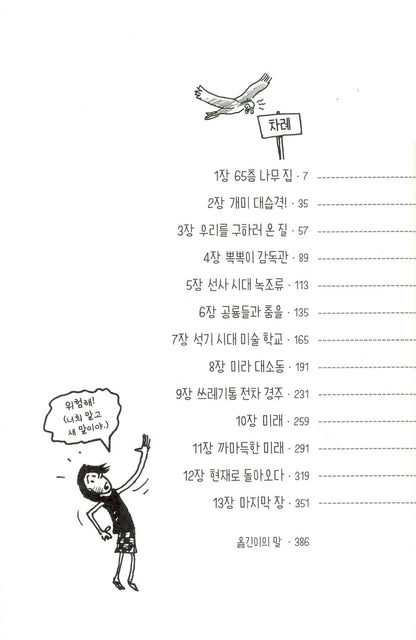 차례
1장 65층 나무 집 · 7
2장 개미 대습격! · 35
3장 우리를 구하러 온 질 · 57
4장 뽁뽁이 감독관 · 89
5장 선사 시대 녹조류 · 113
6장 공룡들과 춤을 · 135
7장 석기 시대 미술 학교 · 165
8장 미라 대소동 · 191
9장 쓰레기통 전차 경주 · 231
10장 미래 · 259
11장 까마득한 미래 · 291
12장 현재로 돌아오다 · 319
13장 마지막 장 · 351
옮긴이의 말 · 386
위험해!
(너희 말고
새 말이야.)